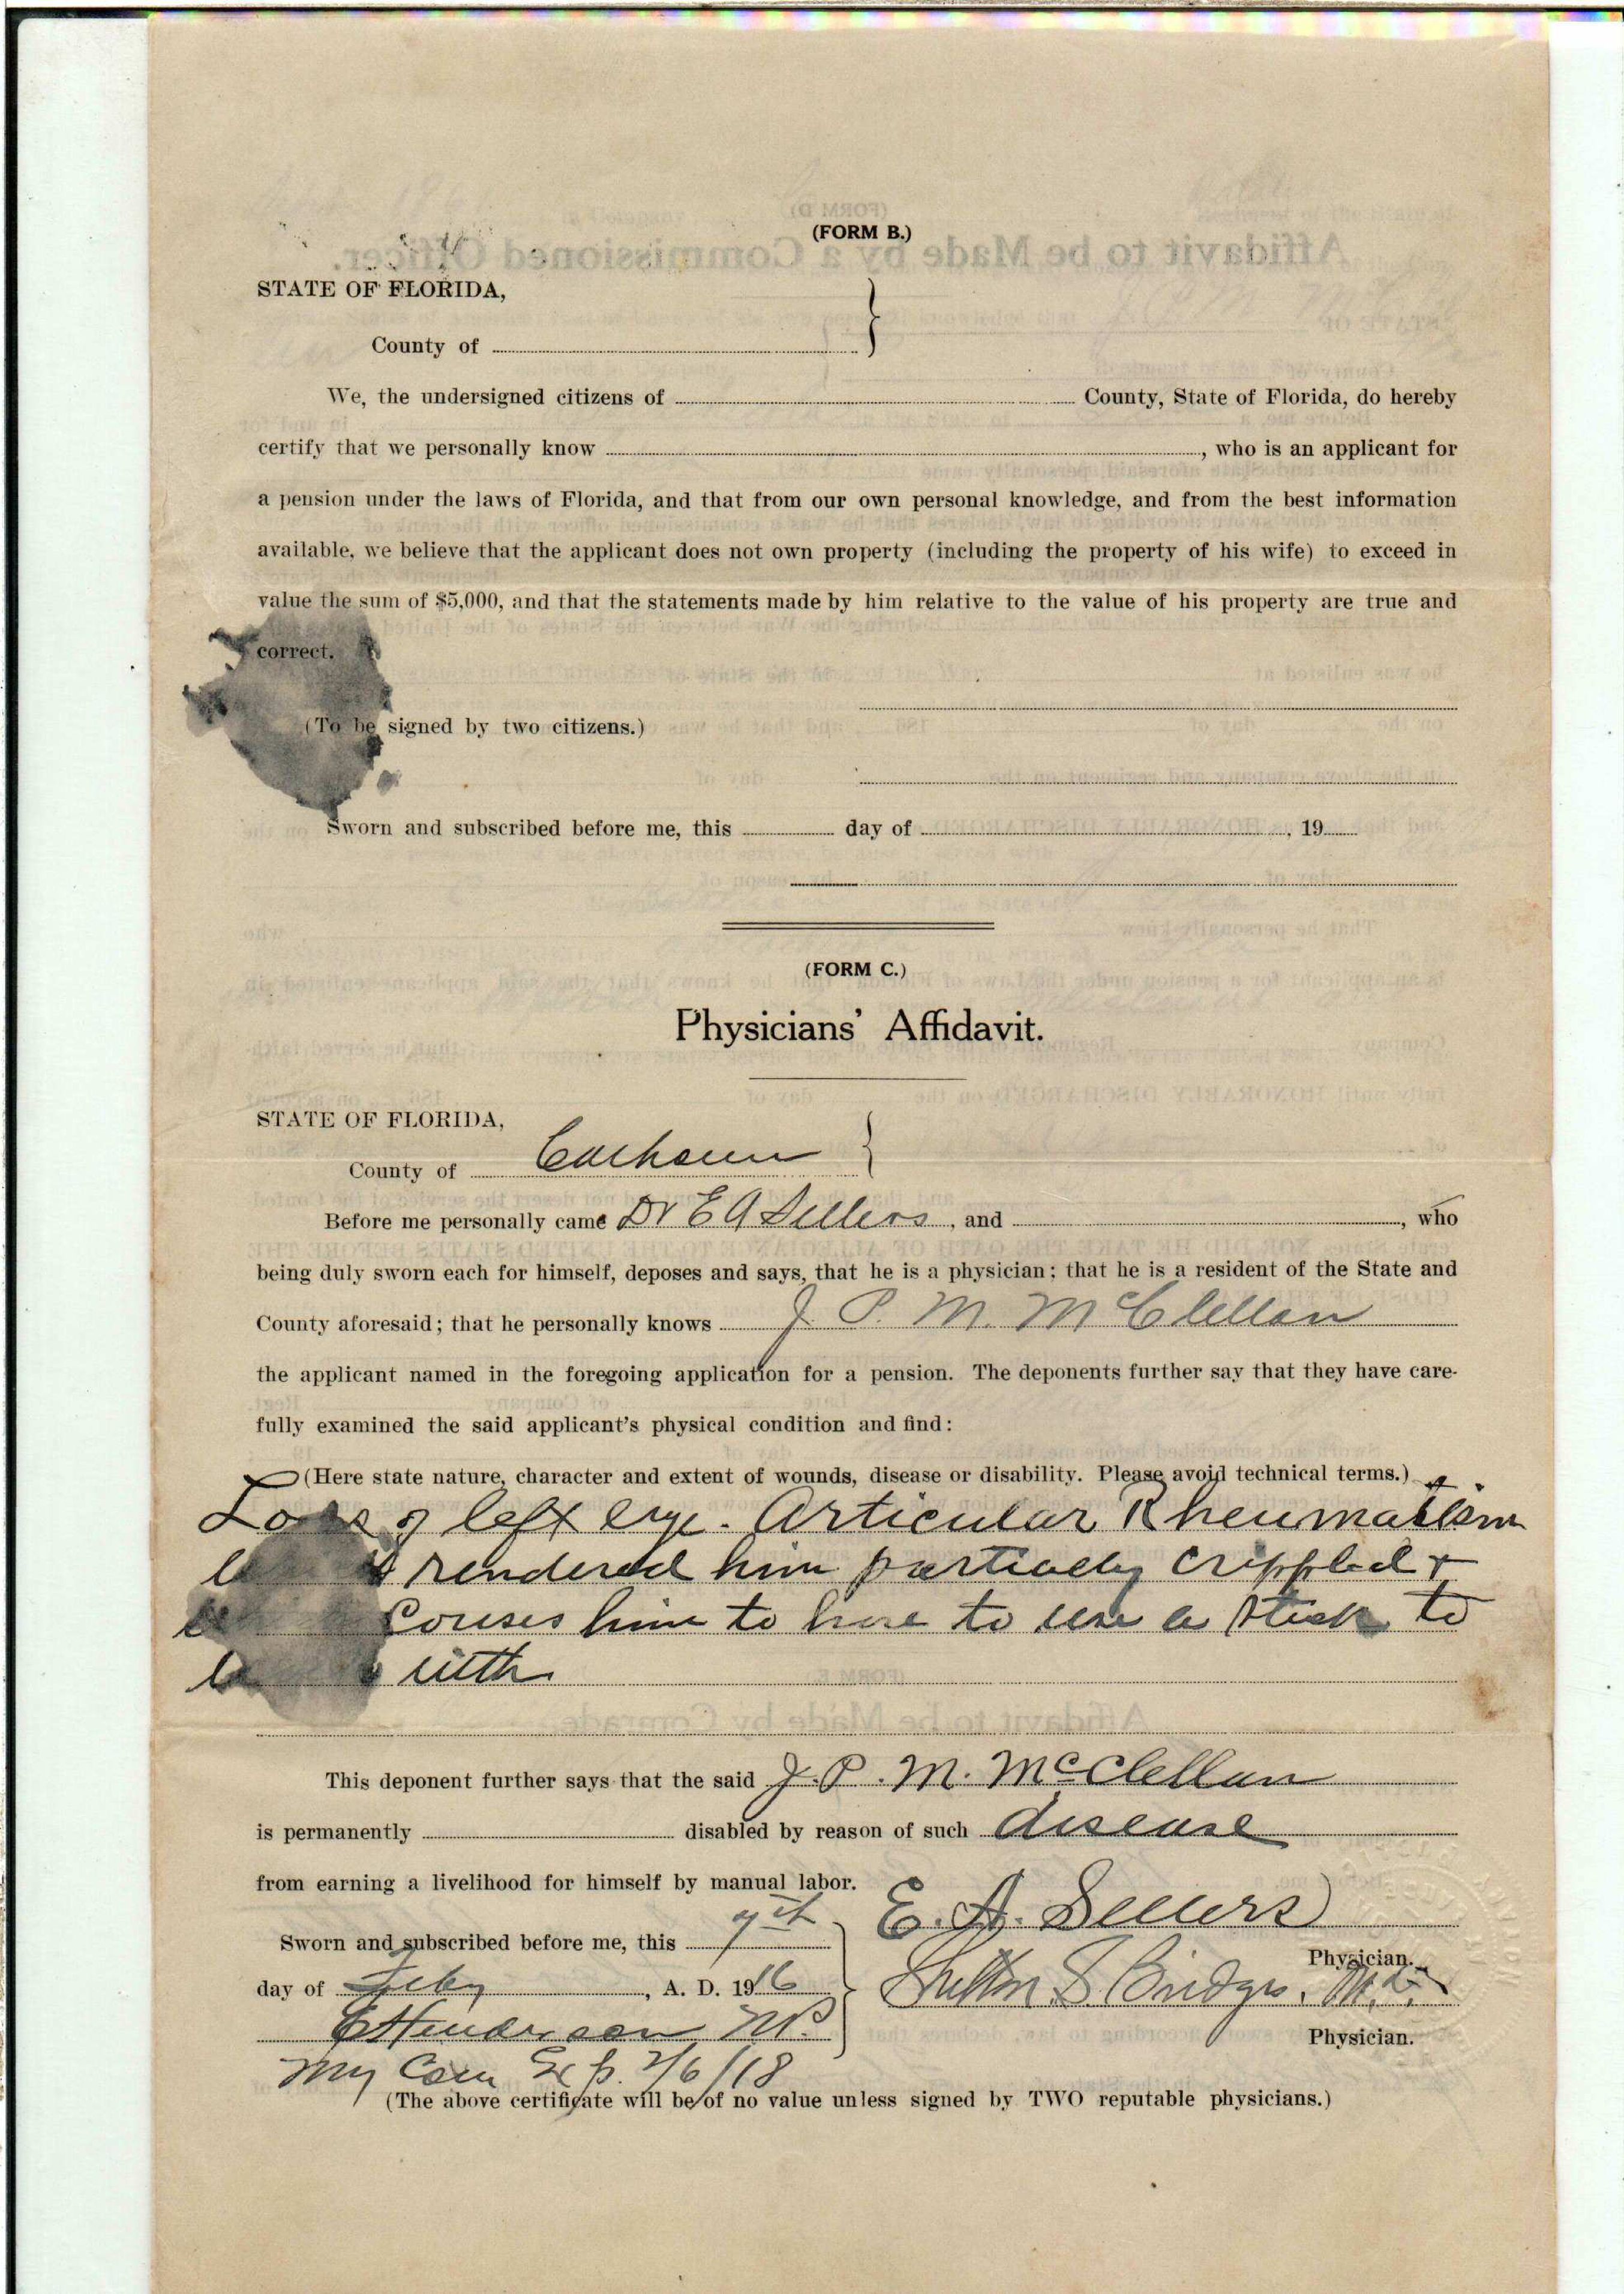 (FORM B.)
STATE OF FLORIDA,
County of
We, the undersigned citizens of County, State of Florida, do hereby
certify that we personally know , who is an applicant for
a pension under the laws of Florida, and that from our own personal knowledge, and from the best information
available, we believe that the applicant does not own property (including the property of his wife) to exceed in
value the sum of $5,000, and that the statements made by him relative to the value of his property are true and
correct.
(To be signed by two citizens.)
Sworn and subscribed before me, this day of , 19
(FORM C.)
Physicians' Affidavit.
STATE OF FLORIDA,
County of Calhoun
Before me personally came Dr E A Sellers, and , who
being duly sworn each for himself, deposes and says, that he is a physician; that he is a resident of the State and
County aforesaid; that he personally knows J. P. M. McClellan
the applicant named in the foregoing application for a pension. The deponents further say that they have care-
fully examined the said applicant's physical condition and find:
(Here state nature, character and extent of wounds, disease or disability. Please avoid technical terms.)
Loss of left eye. Articular Rheumatism
rendered him partially crippled +
Causes him to have to use a stick to
with
This deponent further says that the said J. P. M. McClellan
is permanently disabled by reason of such disease
from earning a livelihood for himself by manual labor.
E. A. Sellers
Sworn and subscribed before me, this
Physician.
day of Feby, A. D. 1916
S. Bridges, M.D.
Henderson NP.
Physician.
My Com Exp. 2/6/18
(The above certificate will be of no value unless signed by TWO reputable physicians.)